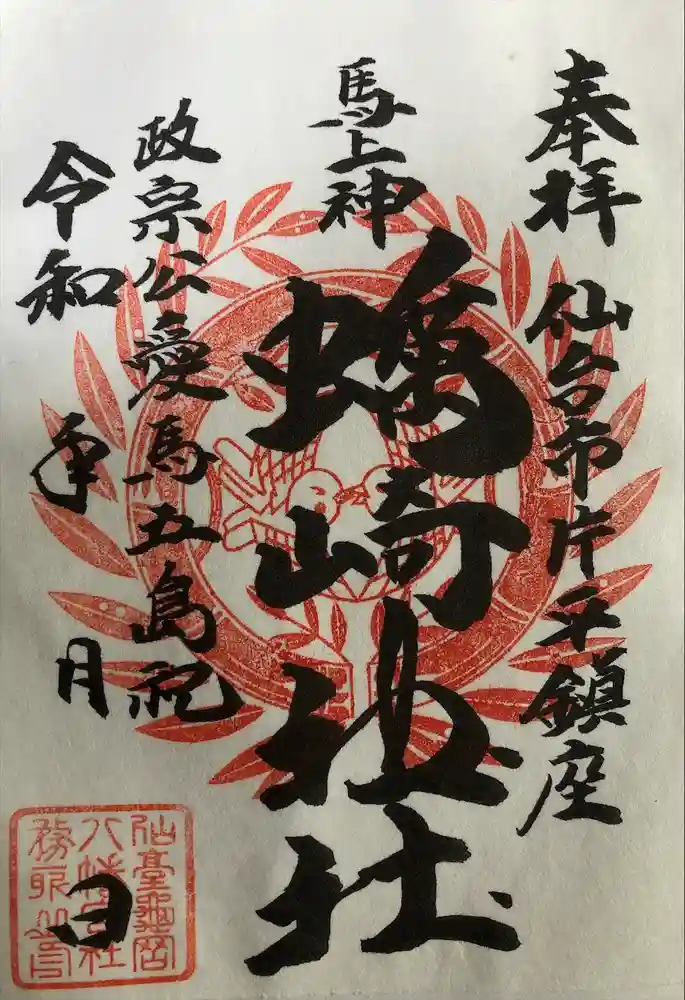 奉拝
仙台市片平鎮座
馬上神
蠣崎神社
政宗公愛馬五島祀
令和 年 月 日
仙臺龜岡
八幡宮社
務所之